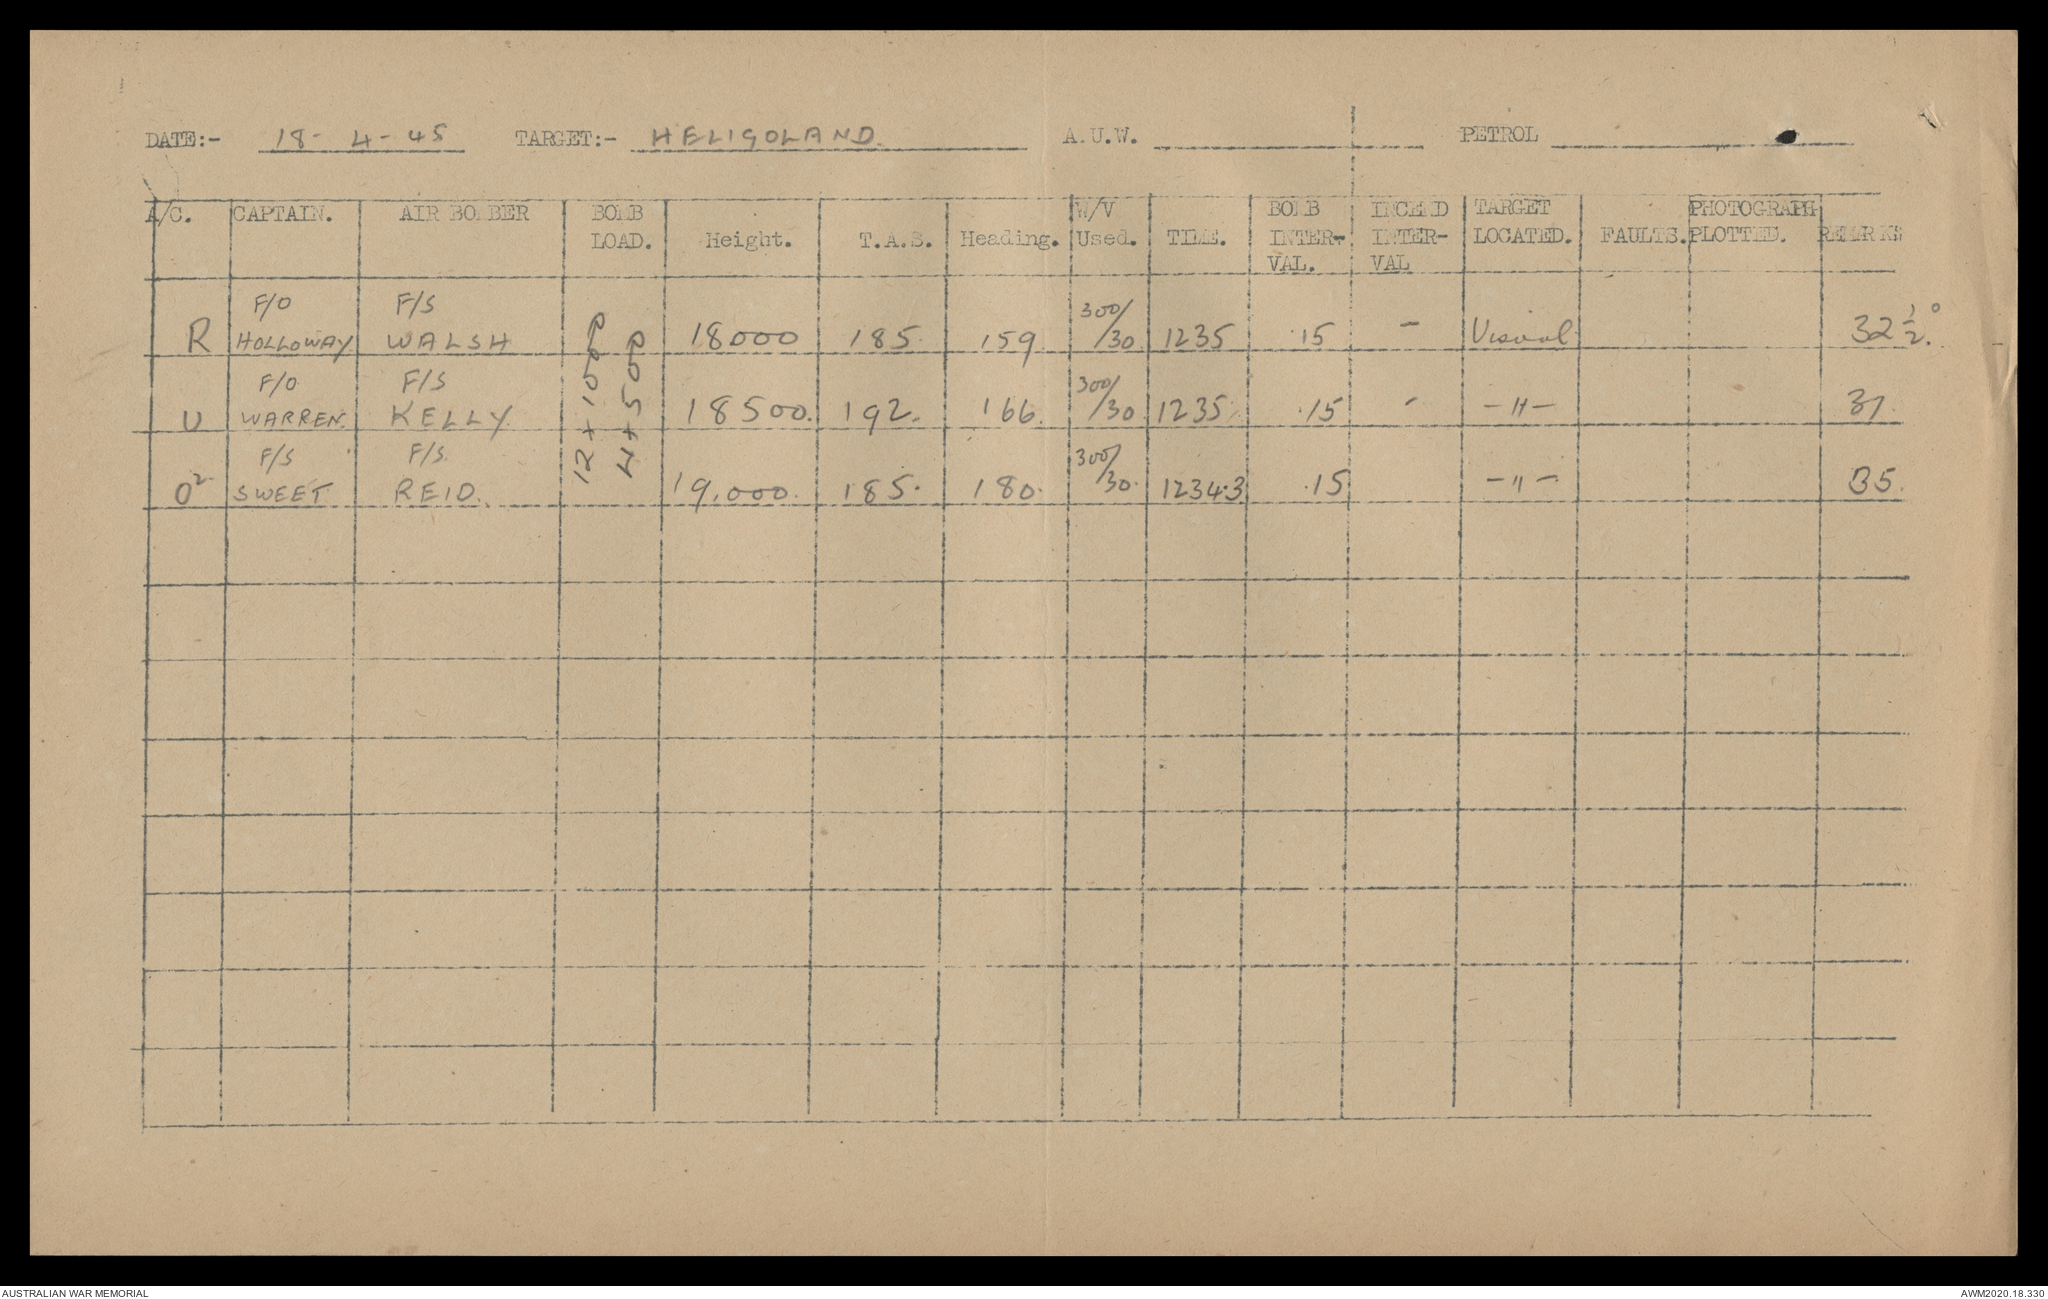 DATE:- 18-4-45 TARGET:- HELIGOLAND. A.U.W. PETROL
A/C. CAPTAIN. AIR BOMBER BOMB LOAD. Height. T.A.S. Heading. W/V Used. TIME. BOMB INTER-VAL. INCEND INTER-VAL TARGET LOCATED. FAULTS. PHOTOGRAPH PLOTTED. REMARKS
R F/O HOLLOWAY F/S WALSH 18000 185. 159. 300/30 1235 .15 - Visual 32½°.
U F/O WARREN. F/S KELLY. 18500. 192. 166. 300/30 1235. .15 - -"- 37.
O² F/S SWEET F/S. REID. 19,000. 185. 180. 300/30. 1234.3 .15 -"- 35.
AUSTRALIAN WAR MEMORIAL
AWM2020.18.330